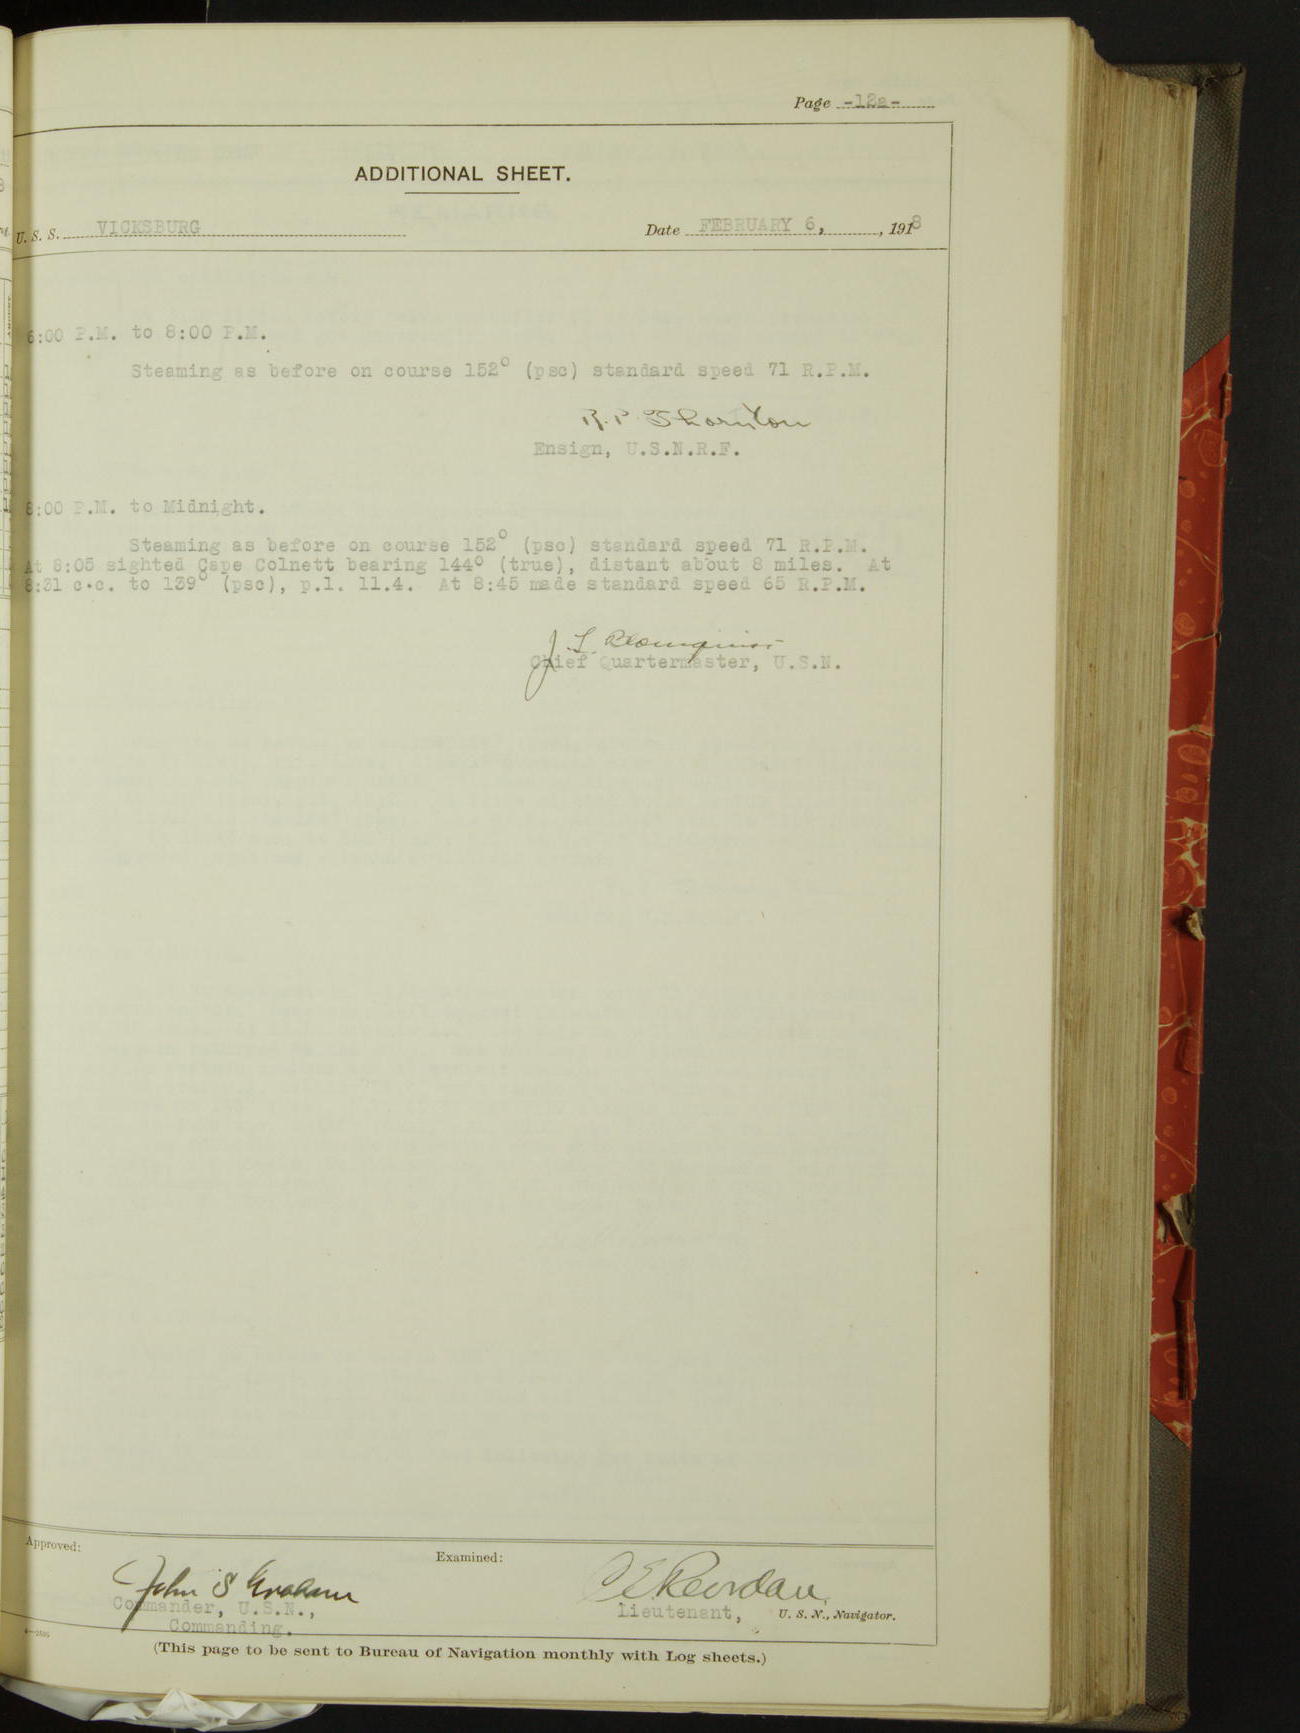 Page -12a-
ADDITIONAL SHEET.
U. S. S. VICKSBURG Date FEBRUARY 6, , 1918
6:00 P.M. to 8:00 P.M.
Steaming as before on course 152° (psc) standard speed 71 R.P.M.
R. P. Thornton
Ensign, U.S.N.R.F.
8:00 P.M. to Midnight.
Steaming as before on course 152° (psc) standard speed 71 R.P.M.
At 8:05 sighted Cape Colnett bearing 144° (true), distant about 8 miles. At
8:31 c.c. to 139° (psc), p.l. 11.4. At 8:45 made standard speed 65 R.P.M.
J. L.
Chief Quartermaster, U.S.N.
Approved:
Examined:
John S Graham
Commander, U.S.N.,
Commanding.
Reordan
Lieutenant, U. S. N., Navigator.
(This page to be sent to Bureau of Navigation monthly with Log sheets.)